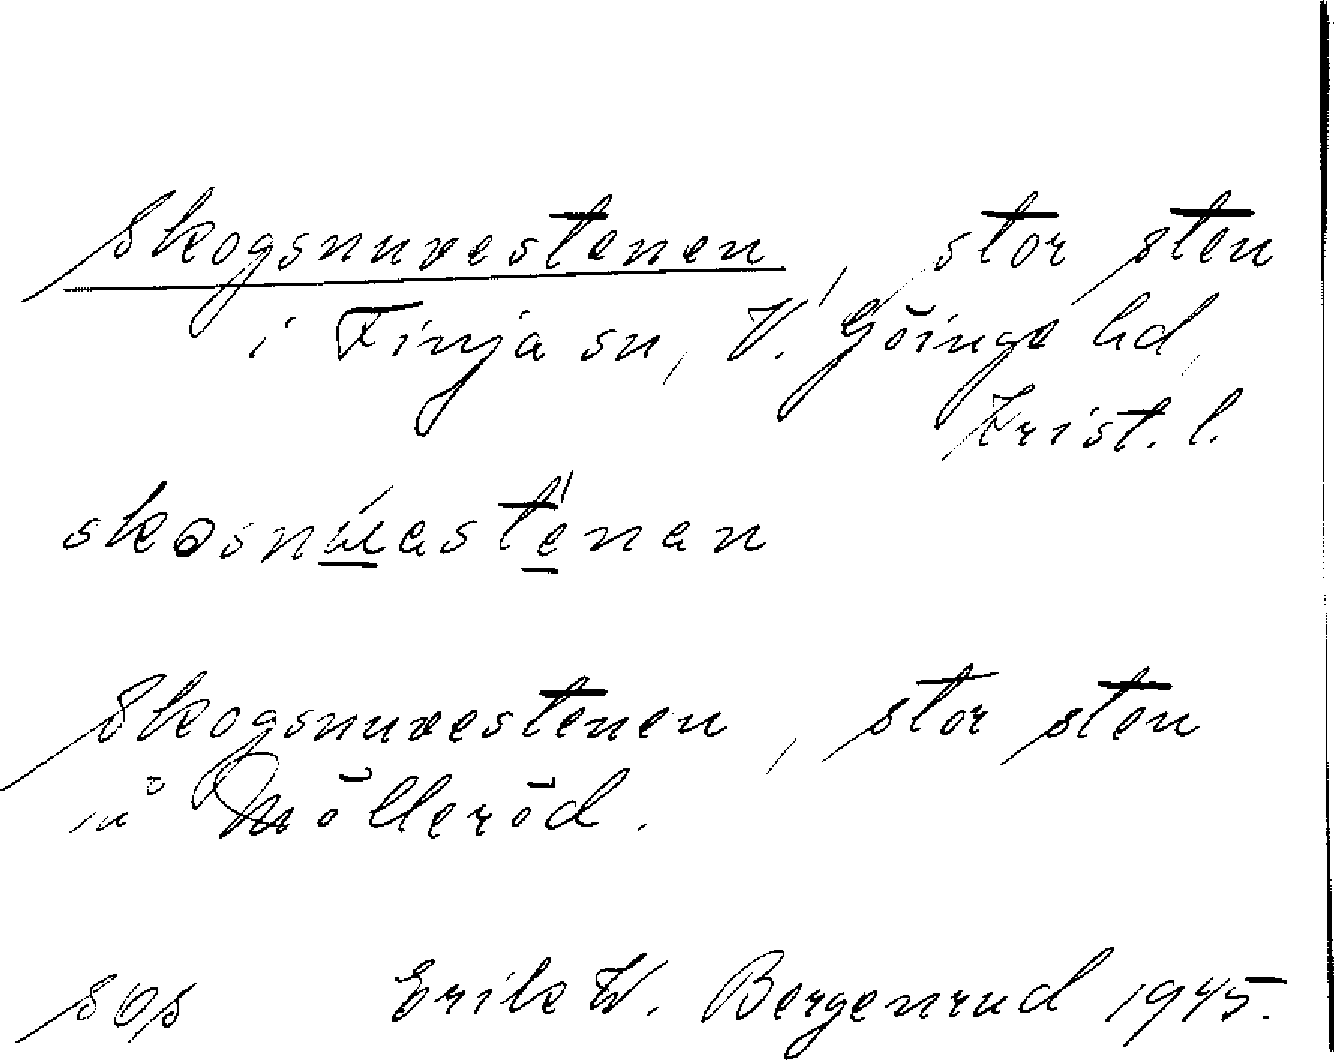 Skogsnuvestenen, stor sten
i Finja sn, V. Göinge hd,
Krist. l.
Skogsnuvestenen, stor sten
å Mölleröd.
sep Erik W. Bergenrud 1945.